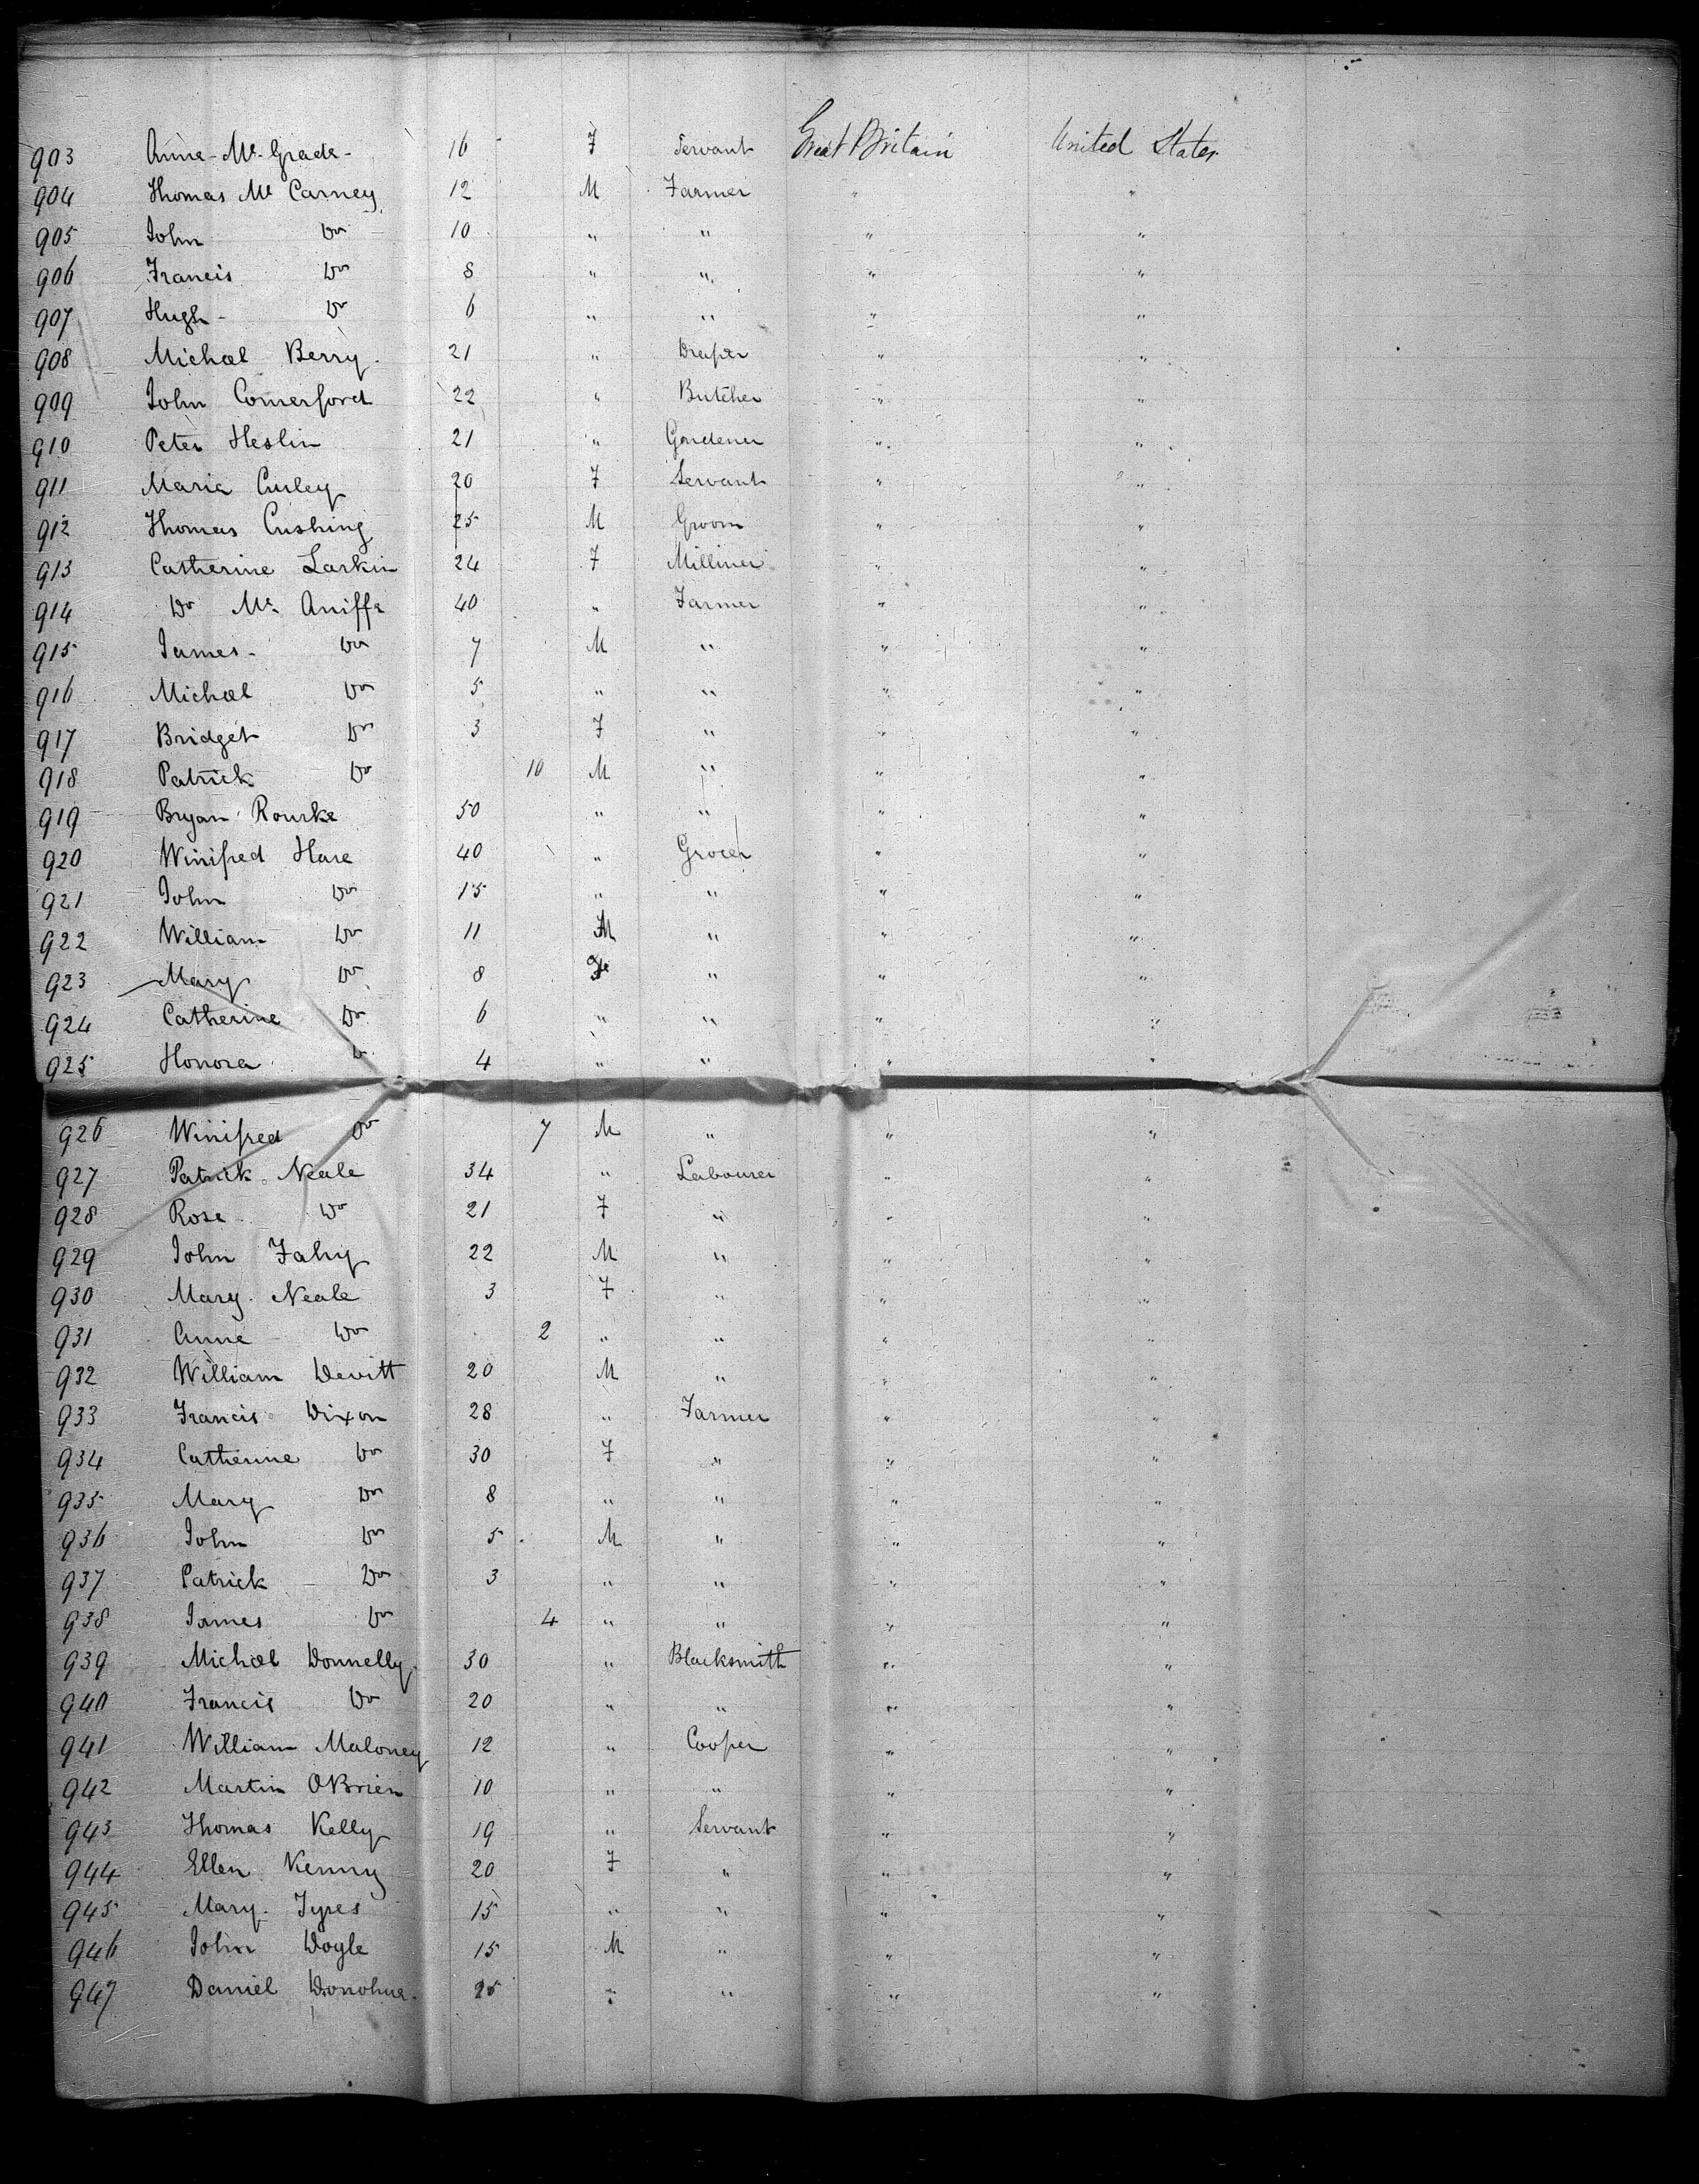 903 Anne Mc Grade 16 F Servant Great Britain United States
904 Thomas Mc Carney 12 M Farmer " "
905 John Do 10 " " " "
906 Francis Do 8 " " " "
907 Hugh Do 6 " " " "
908 Michael Berry 21 " Draper " "
909 John Comerford 22 " Butcher " "
910 Peter Heslin 21 " Gardener " "
911 Maria Curley 20 F Servant " "
912 Thomas Cushing 25 M Groom " "
913 Catherine Larkin 24 F Milliner " "
914 Do Mc Aniffe 40 " Farmer " "
915 James Do 7 M " " "
916 Michael Do 5 " " " "
917 Bridget Do 3 F " " "
918 Patrick Do 10 M " " "
919 Bryan Rourke 50 " " " "
920 Winifred Hare 40 " Grocer " "
921 John Do 15 " " " "
922 William Do 11 M " " "
923 Mary Do 8 F " " "
924 Catherine Do 6 " " " "
925 Honora Do 4 " " " "
926 Winifred Do 7 M " " "
927 Patrick Neale 34 " Labourer " "
928 Rose Do 21 F " " "
929 John Fahy 22 M " " "
930 Mary Neale 3 F " " "
931 Anne Do 2 " " " "
932 William Devitt 20 M " " "
933 Francis Dixon 28 " Farmer " "
934 Catherine Do 30 F " " "
935 Mary Do 8 " " " "
936 John Do 5 M " " "
937 Patrick Do 3 " " " "
938 James Do 4 " " " "
939 Michael Donnelly 30 " Blacksmith " "
940 Francis Do 20 " " " "
941 William Maloney 12 " Cooper " "
942 Martin OBrien 10 " " " "
943 Thomas Kelly 19 " Servant " "
944 Ellen Kenny 20 F " " "
945 Mary 15 " " " "
946 John Doyle 15 M " " "
947 Daniel Donohue 25 " " " "